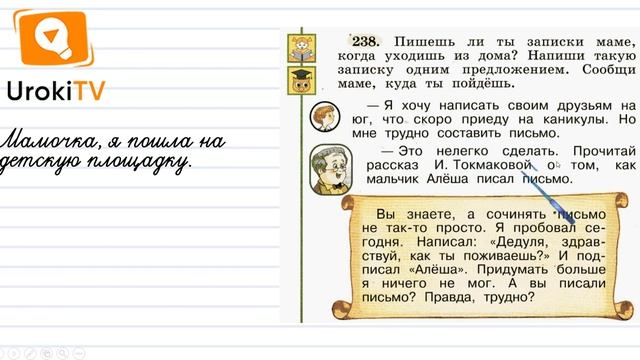 UrokiTV
Мамочка, я пошла на
детскую площадку.
238. Пишешь ли ты записки маме,
когда уходишь из дома? Напиши такую
записку одним предложением. Сообщи
маме, куда ты пойдёшь.
— Я хочу написать своим друзьям на
юг, что скоро приеду на каникулы. Но
мне трудно составить письмо.
— Это нелегко сделать. Прочитай
рассказ И. Токмаковой о том, как
мальчик Алёша писал письмо.
Вы знаете, а сочинять письмо
не так-то просто. Я пробовал се-
годня. Написал: «Дедуля, здрав-
ствуй, как ты поживаешь?» И под-
писал «Алёша». Придумать больше
я ничего не мог. А вы писали
письмо? Правда, трудно?